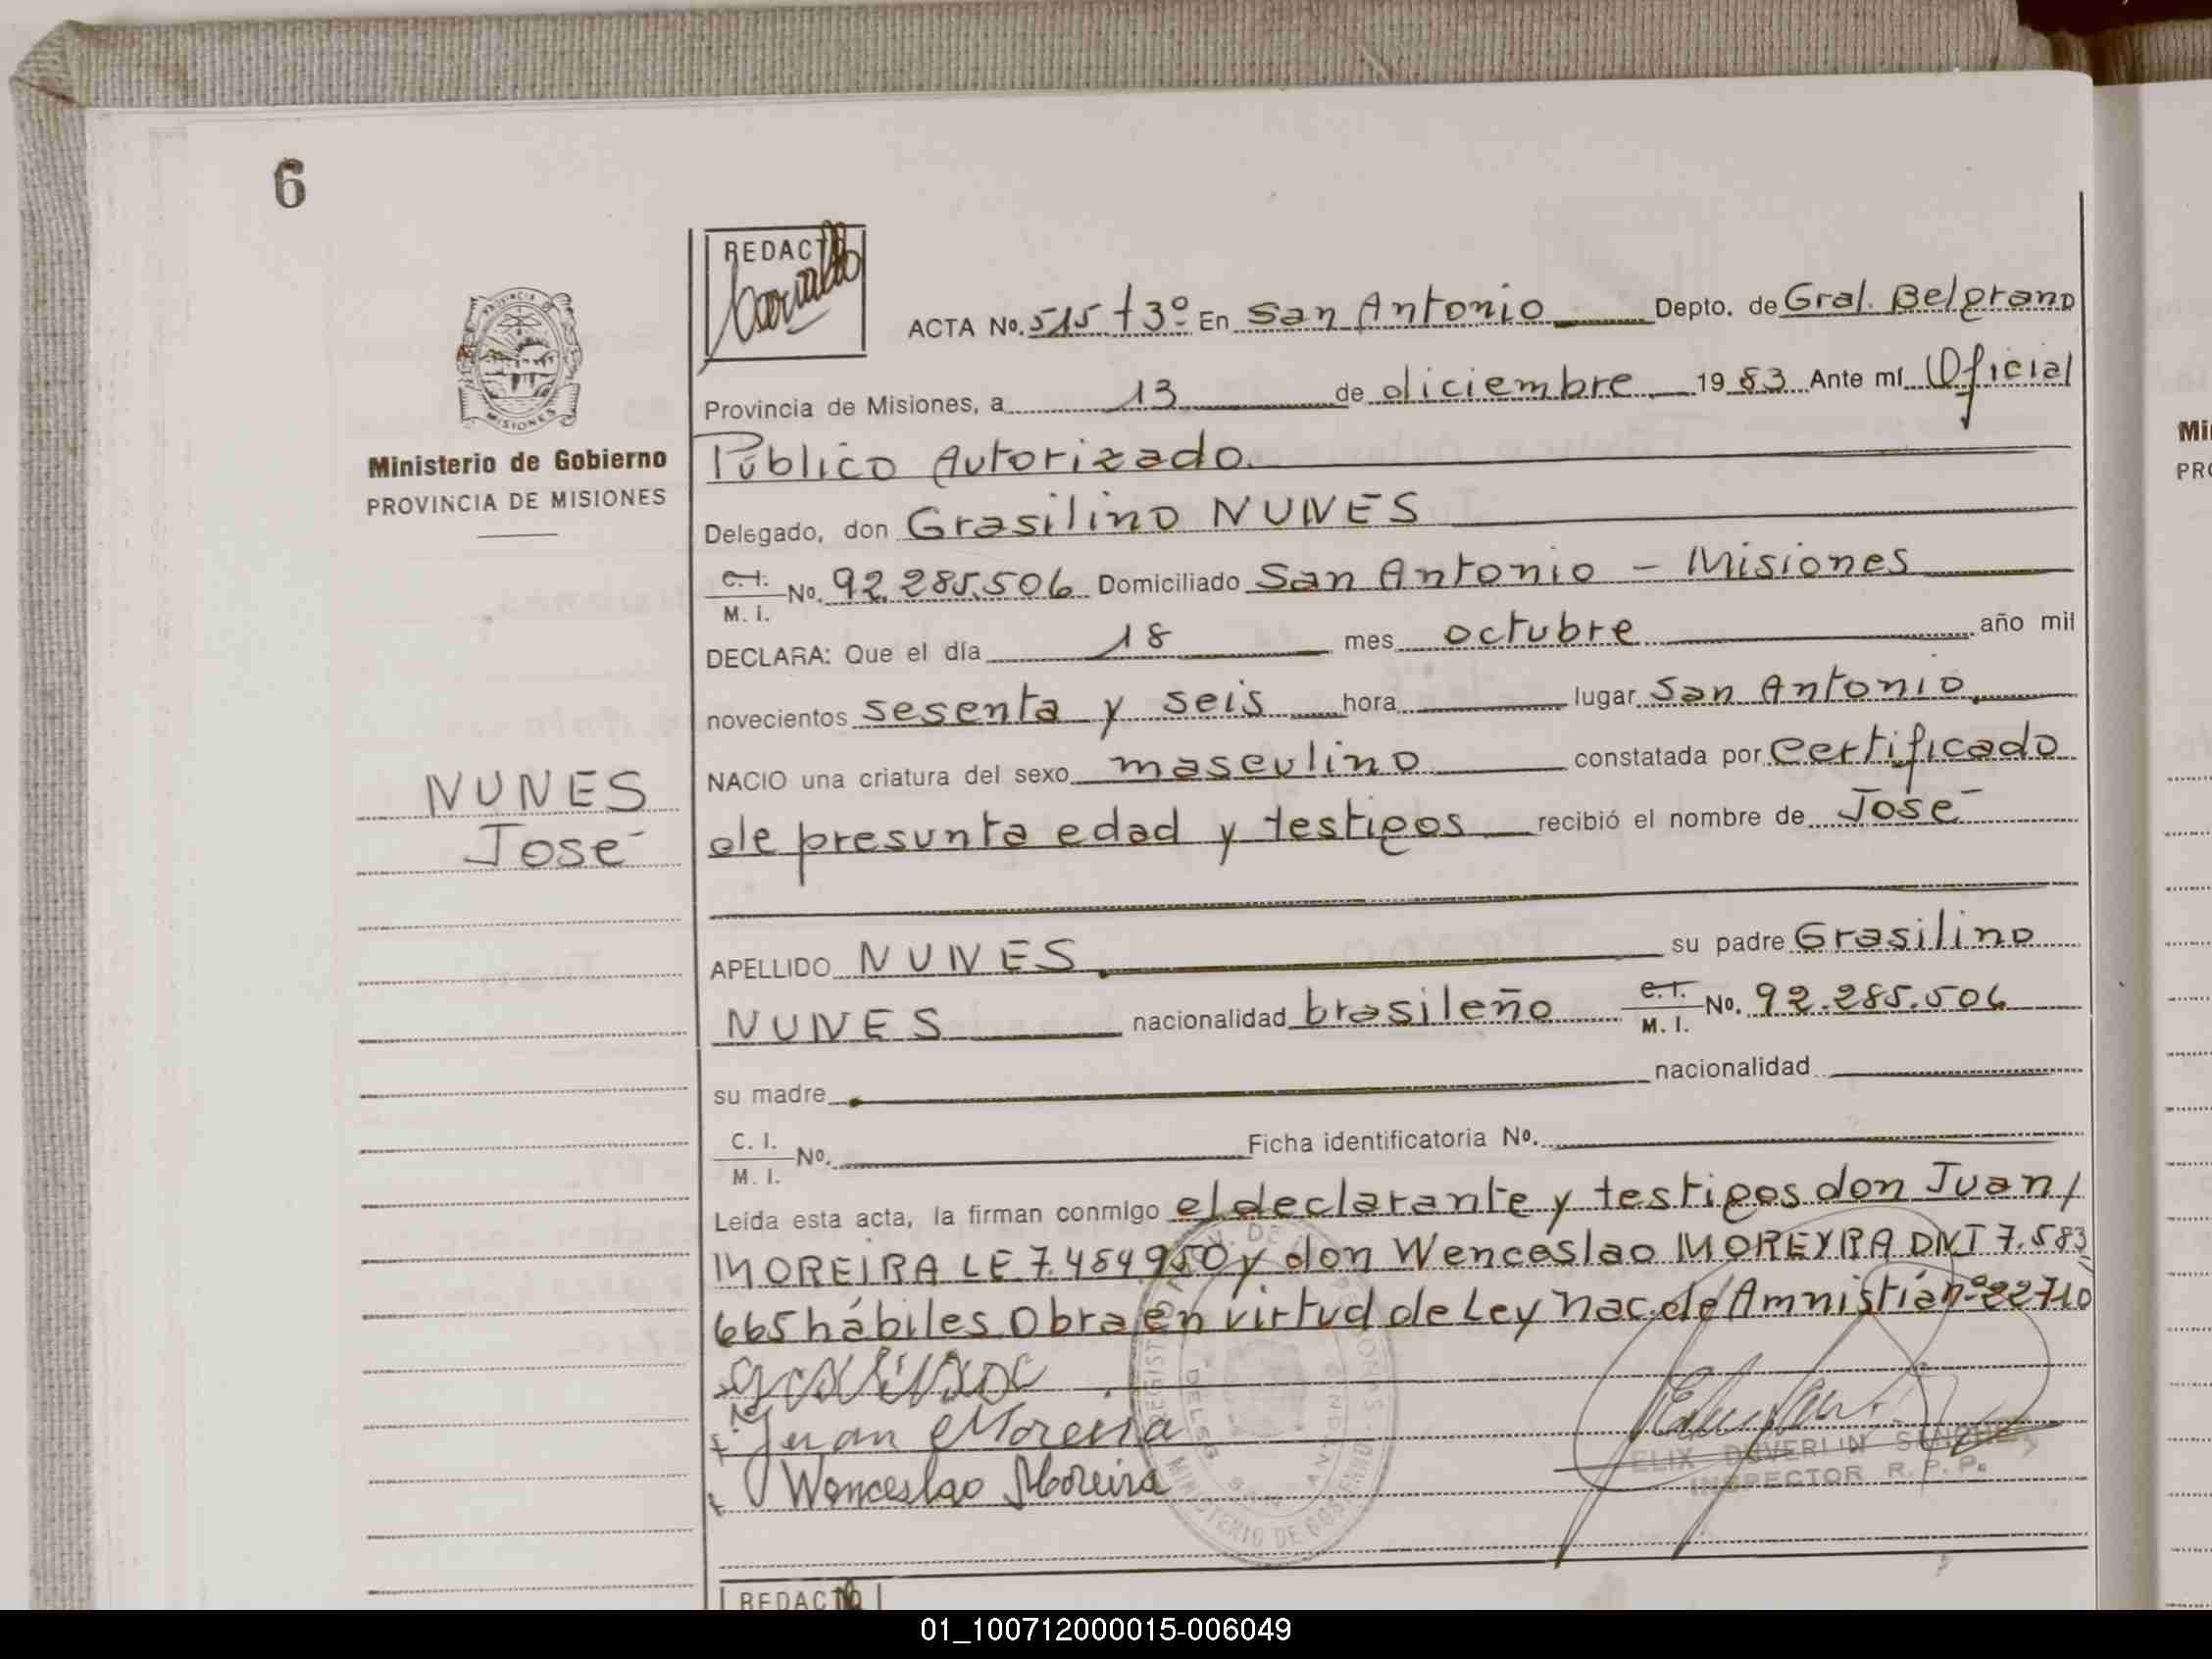 6
REDACTO
ACTA No. 515 t 3º En San Antonio Depto. de Gral. Belgrano
Provincia de Misiones, a 13 de diciembre 1983 Ante mí Oficial
Público Autorizado.
Delegado, don Grasilino NUNES
C.I. / M. I. No. 92.285.506 Domiciliado San Antonio - Misiones
DECLARA: Que el día 18 mes octubre año mil
novecientos sesenta y seis hora lugar San Antonio
NACIO una criatura del sexo masculino constatada por Certificado
de presunta edad y testigos recibió el nombre de José
APELLIDO NUNES su padre Grasilino
NUNES nacionalidad brasileño C.I. / M. I. No. 92.285.506
su madre nacionalidad
C. I. / M. I. No. Ficha identificatoria No.
Leída esta acta, la firman conmigo el declarante y testigos don Juan/
MOREIRA LE 7.484950 y don Wenceslao MOREYRA DNI 7.583
665 hábiles Obra en virtud de Ley Nac. de Amnistía nº 22710
Juan Moreira
Wenceslao Moreira
PROVINCIA DE MISIONES
Ministerio de Gobierno
PROVINCIA DE MISIONES
NUNES
José
MINISTERIO DE GOBIERNO
SAN ANTONIO
FELIX DUVERLIN SANCHEZ
INSPECTOR R. P. P.
REDACTO
Mi
PRO
01_100712000015-006049